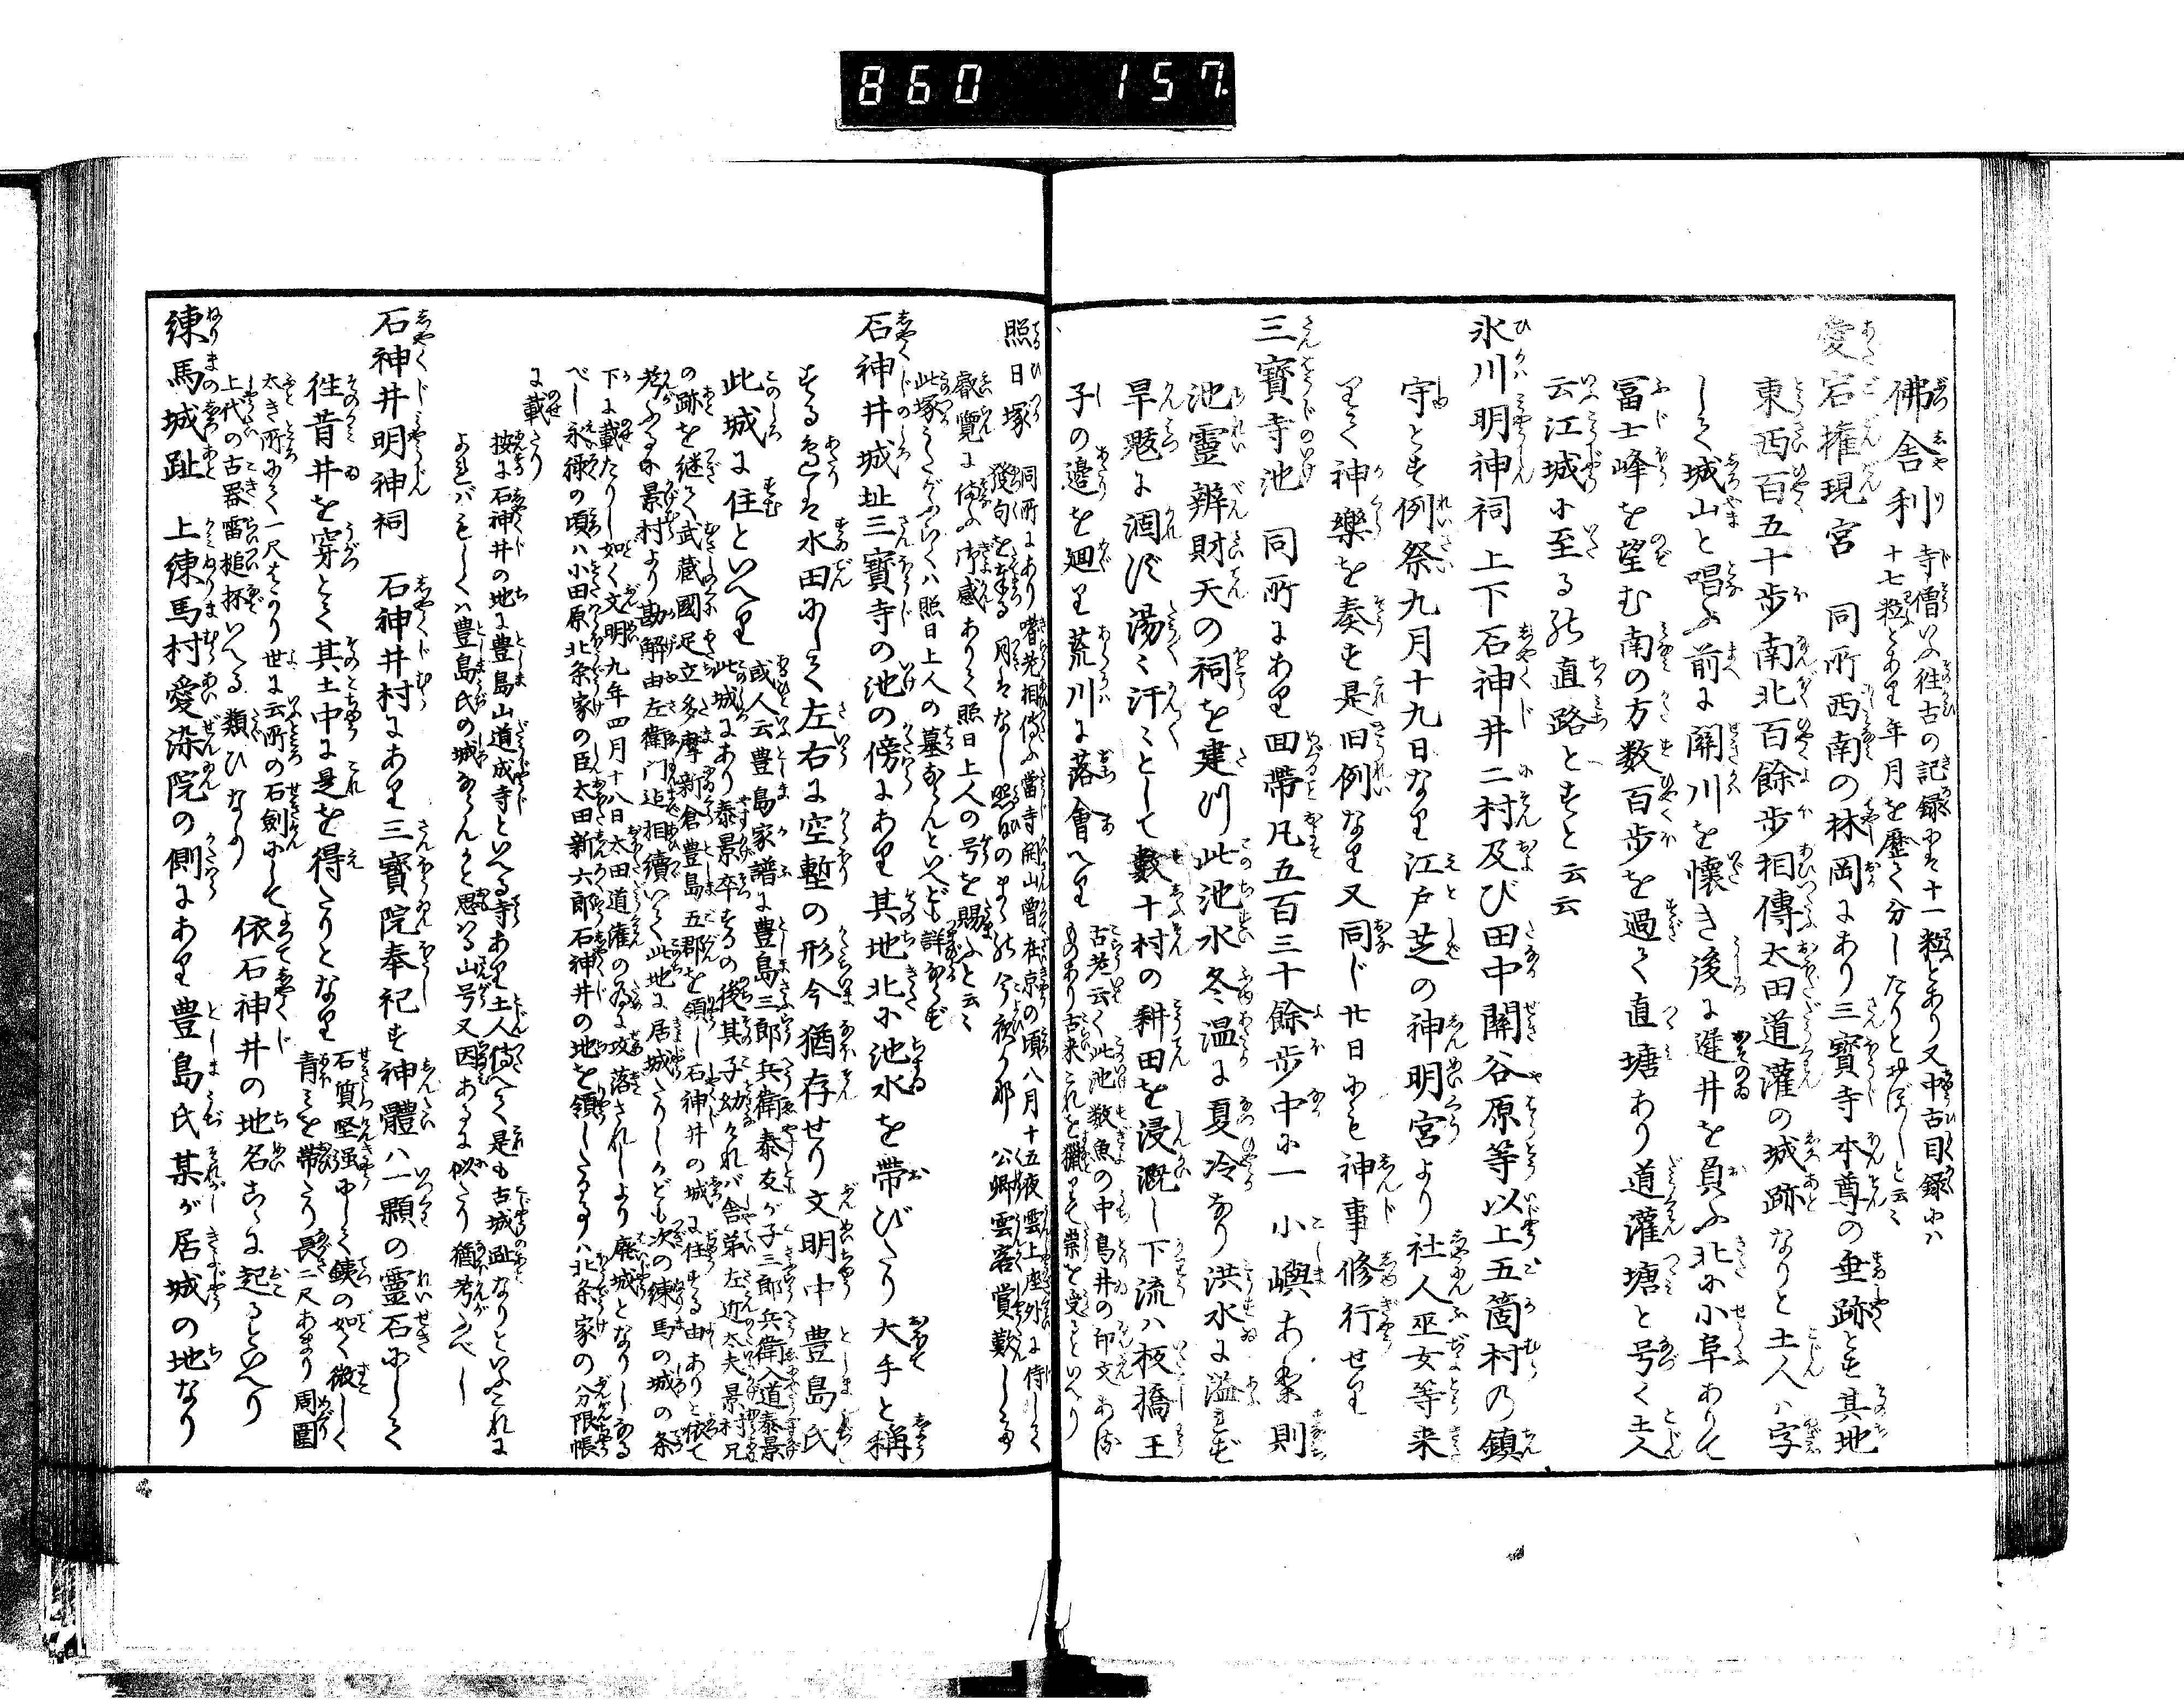 860 157.
佛舎利 寺僧いふ往古の記録には十一粒とあり又中古目録には
十七粒とあり年月を歴て分したりとおぼしと云々
愛宕権現宮 同所西南の林岡にあり三寳寺本尊の垂跡とす其地
東西百五十歩南北百餘歩相傳太田道灌の城跡なりと土人ハ字
して城山と唱ふ前に關川を懐き後に遅井を負ふ北に小阜ありて
冨士峰を望む南の方数百歩を過て直塘あり道灌塘と号く土人
云江城に至るの直路とすと云云
氷川明神祠 上下石神井二村及び田中關谷原等以上五箇村の鎮
守とす例祭九月十九日なり江戸芝の神明宮より社人巫女等来
りて神樂を奏す是旧例なり又同じ廿日にも神事修行せり
三寳寺池 同所にあり回帶凡五百三十餘歩中に一小嶼あり則
池靈辨財天の祠を建つ此池水冬温に夏冷なり洪水に溢れず
旱魃に涸ず湯々汗々として數十村の耕田を浸漑し下流ハ板橋王
子の邉を廻り荒川に落會へり 古老云く此池数魚の中鳥井の印文ある
ものあり古来これを獵りて祟を受ることいへり
照日塚 同所にあり嗜老相傳ふ當寺開山曾在京の頃八月十五夜雲上座外に侍して
發句を奉る 月はなし照日のまゝの今夜り那 公卿雲客賞歎して
叡覧に備ふ御感ありて照日上人の号を賜ふと云々
此塚うたがふらくハ照日上人の墓ならんといへども詳ならず
石神井城址 三寳寺の池の傍にあり其地北に池水を帶びたり大手と稱
する邉は水田にして左右に空塹の形今猶存せり文明中豊島氏
此城に住といへり 或人云豊島家譜に豊島三郎兵衛泰友が子三郎兵衛入道泰景
此城にあり泰景卒するの後其子幼けれバ舎弟左近太夫景村兄
の跡を継て武蔵國足立多摩新倉豊島五郡を領し石神井の城に住する由ありと依て
考ふるに景村より勘解由左衛門迠相續いて此地に居城たりしかども次の練馬の城の条
下に載たりし如く文明九年四月十八日太田道灌の為に攻落されしより廃城となりしなる
べし永禄の頃ハ小田原北条家の臣太田新六郎石神井の地を領したる事ハ北条家の分限帳
に載たり
按に石神井の地に豊島山道成寺といへる寺あり土人傳へて是も古城趾なりといふこれに
よれバもしくハ豊島氏の城ならんかと思はる山号又因あるに似たり猶考ふべし
石神井明神祠 石神井村にあり三寳院奉祀す神體ハ一顆の靈石にして
徃昔井を穿とて其土中に是を得たりとなり 石質堅强にして鐵の如く微しく
青みを帶たり長二尺あまり周圍
太き所にて一尺はかり世に云所の石劍にして
上代の古器雷槌抔いへる類ひなり 依石神井の地名こゝに起るといへり
練馬城趾 上練馬村愛染院の側にあり豊島氏某が居城の地なり